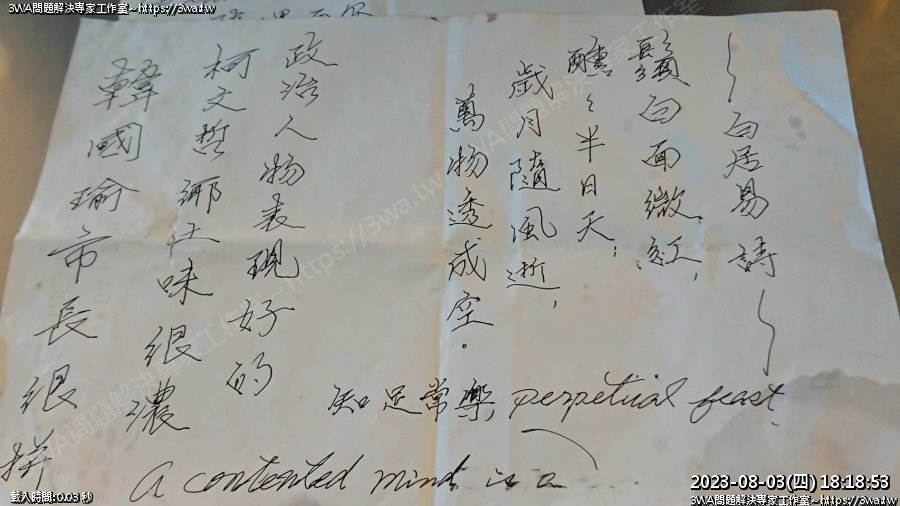 3WA問題解決專家工作室~https://3wa.tw
~白居易詩~
鬚白面微紅,
醺々半日天,
歲月隨風逝,
萬物透成空。
政治人物表現好的
柯文哲鄉土味很濃
韓國瑜市長很拼
知足常樂 perpetual feast.
A contented mind is a
載入時間:0.03 秒
2023-08-03(四) 18:18:53
3WA問題解決專家工作室~https://3wa.tw